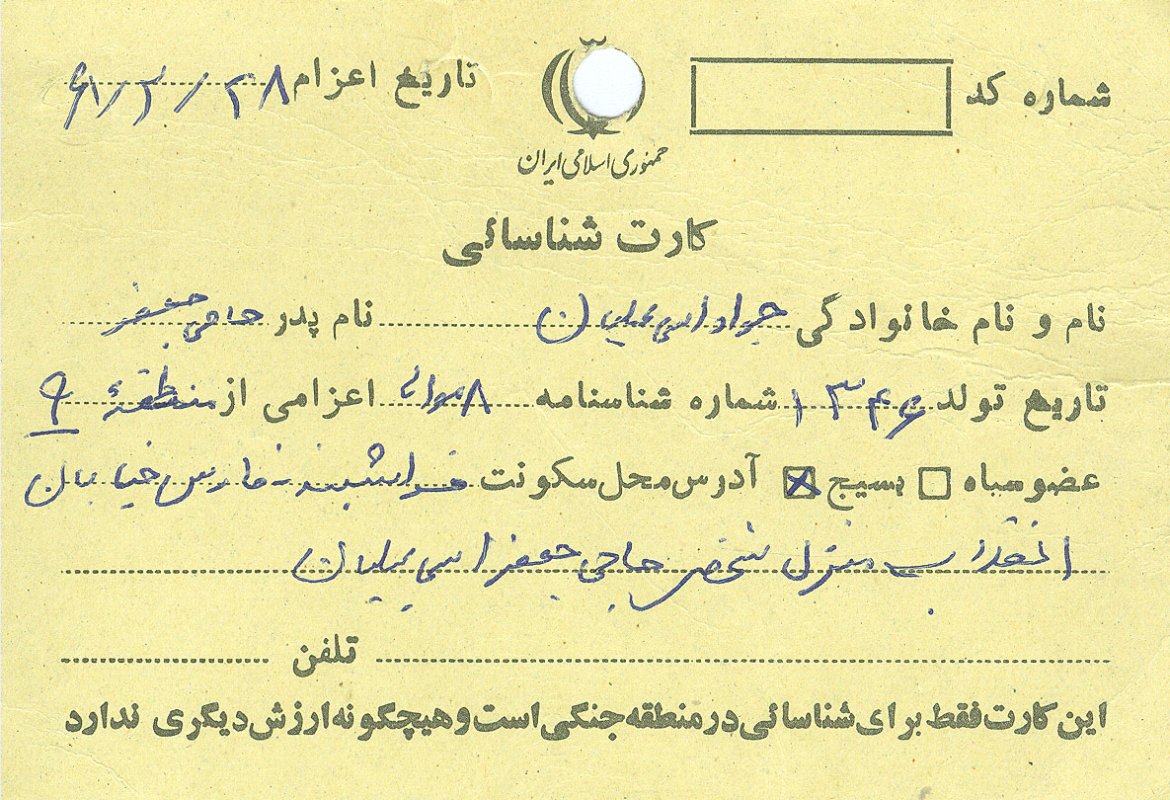 شماره کد
جمهوری اسلامی ایران
تاریخ اعزام ۶۱/۲/۲۸
کارت شناسائی
نام و نام خانوادگی جواد نام پدر حاجی جعفر
تاریخ تولد ۱۳۴۶ شماره شناسنامه ۸ اعزامی از منطقهٔ ۹
عضو سپاه بسیج آدرس محل سکونت فراشبند - فارس خیابان
انقلاب منزل شخصی حاجی جعفر
تلفن
این کارت فقط برای شناسائی در منطقه جنگی است و هیچگونه ارزش دیگری ندارد